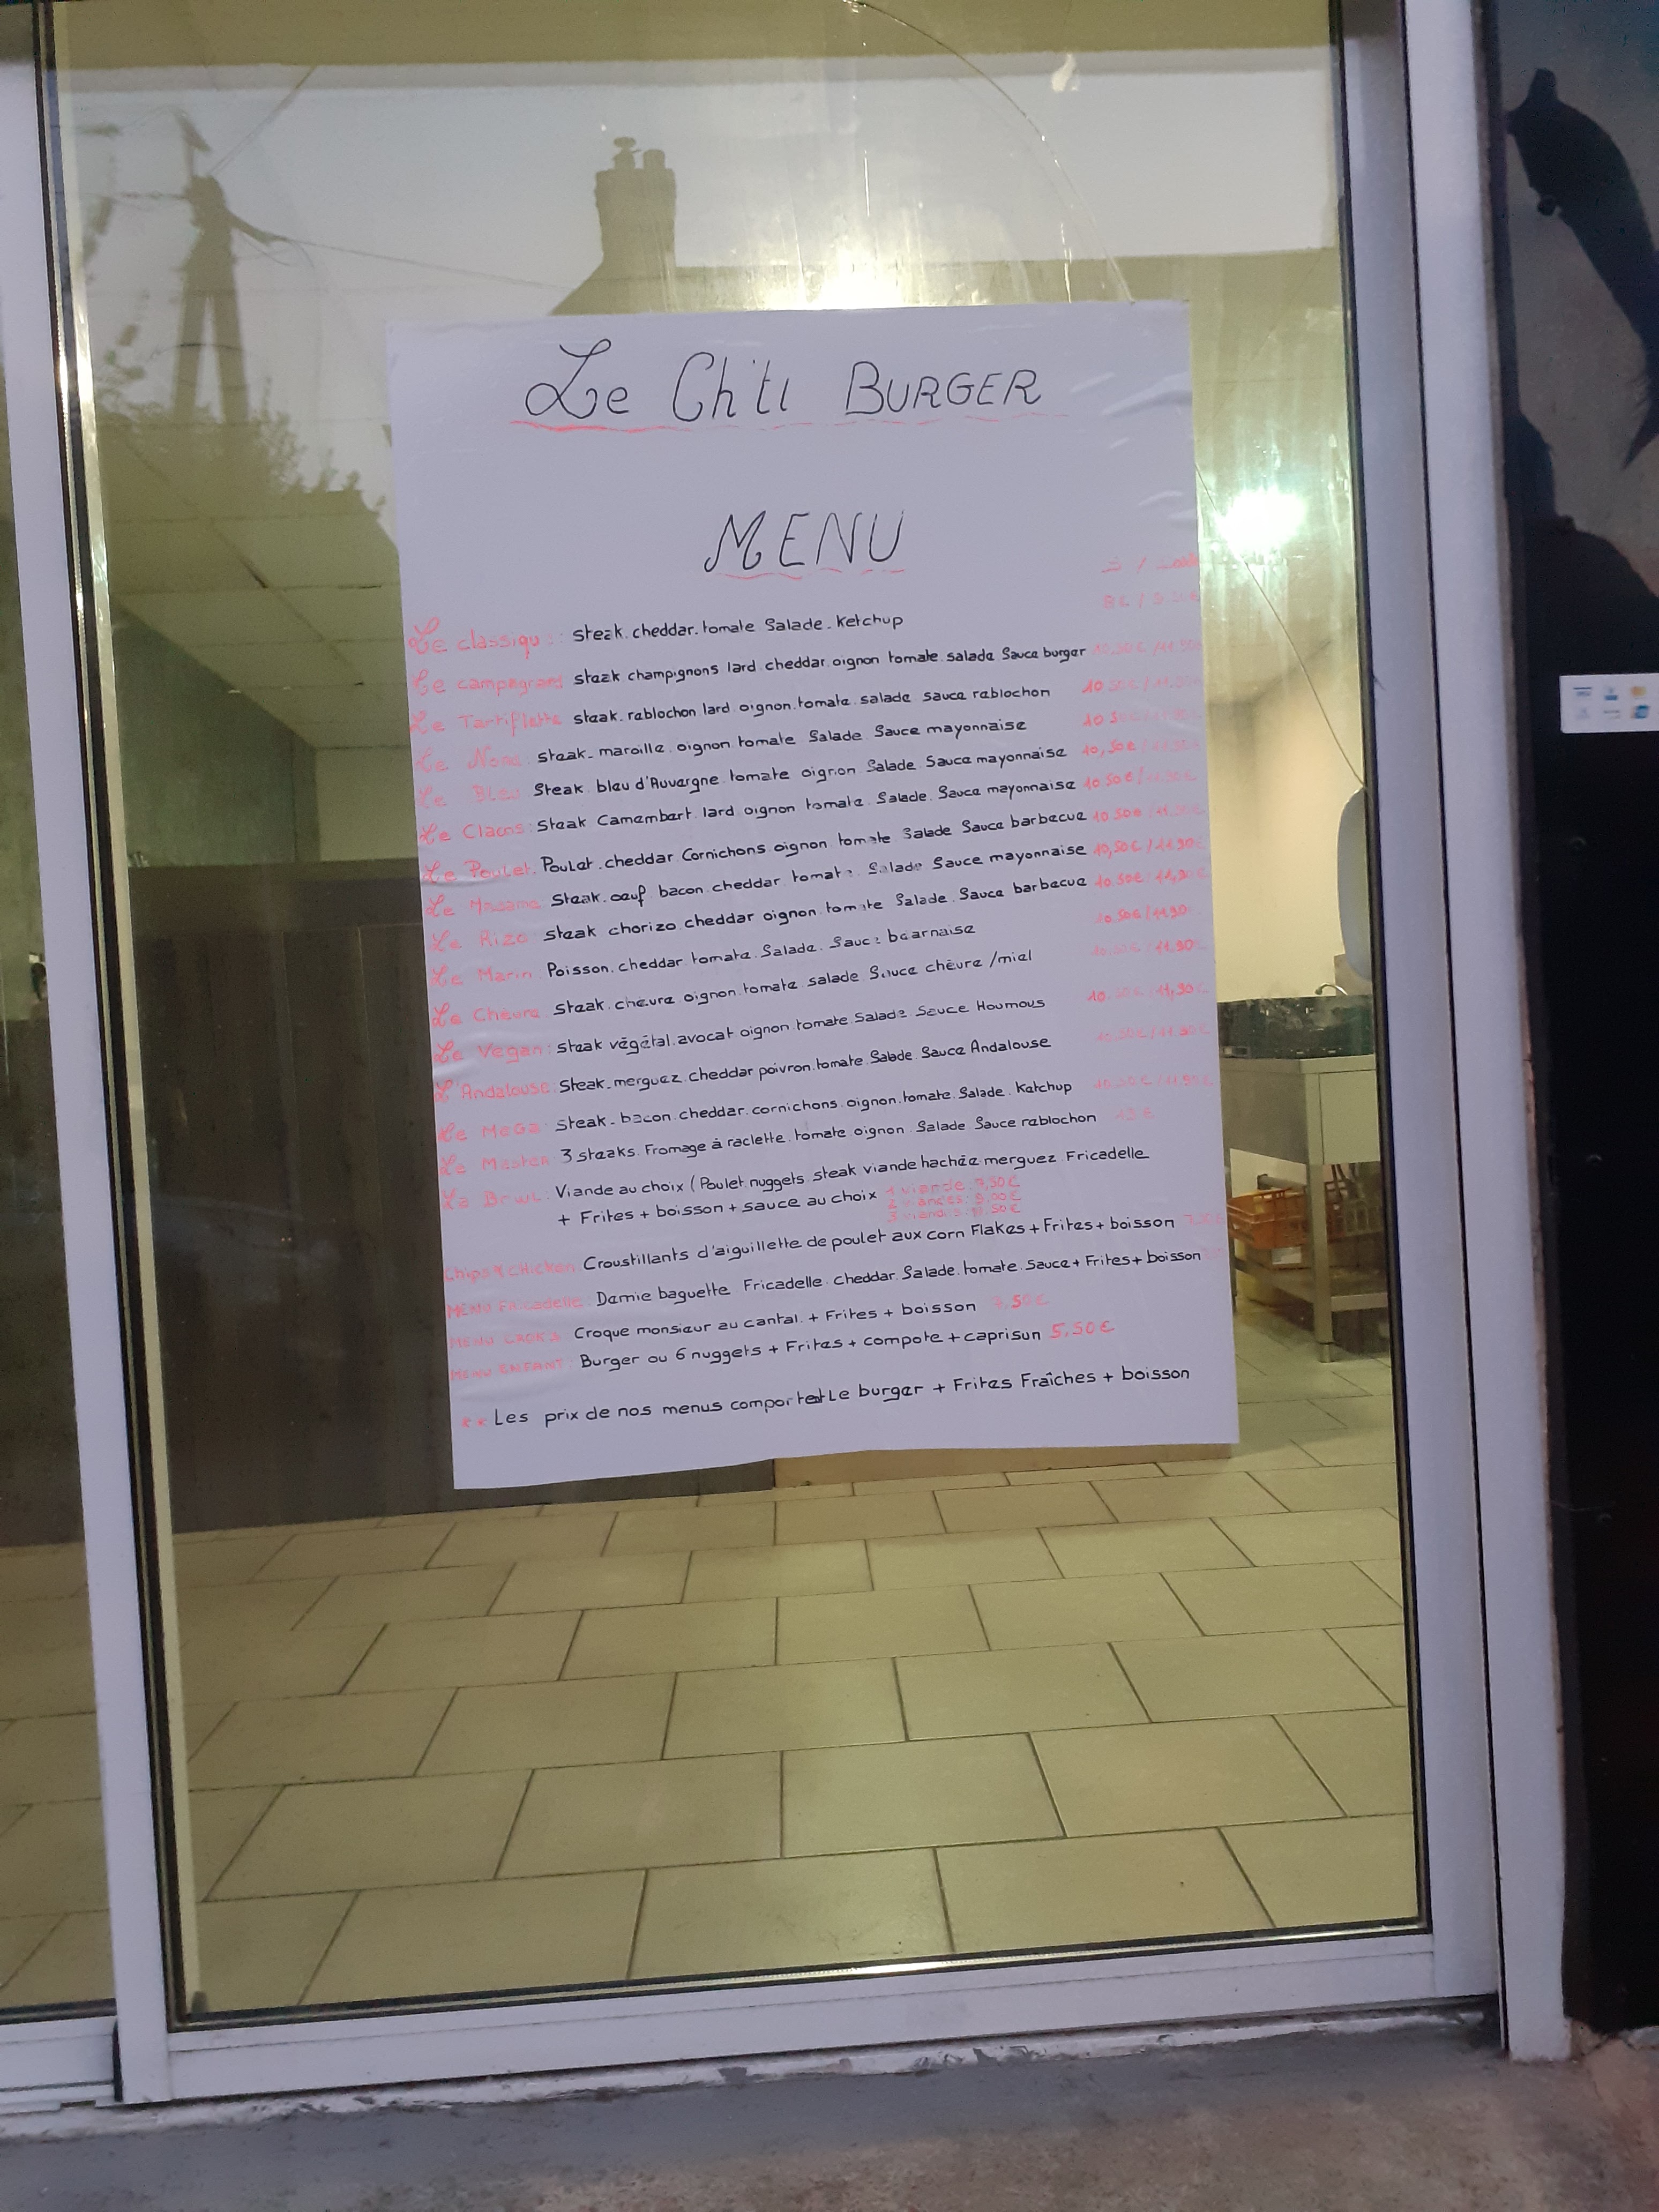 Le Ch'ti BURGER
MENU
Le classique: steak. cheddar. tomate Salade. Ketchup
Le campagnard steak champignons lard cheddar. oignon tomate. salade Sauce burger
Le Tartiflette steak. reblochon lard oignon. tomate. salade sauce reblochon 10
Le steak. maroille. oignon tomate Salade Sauce mayonnaise
Le Bleu Steak. bleu d'Auvergne. tomate oignon Salade. Sauce mayonnaise 10,50€
Le Clacos: Steak Camembert lard oignon tomate. Salade. Sauce mayonnaise 10.50€/
Le Poulet. Poulet. cheddar Cornichons oignon tomate Salade Sauce barbecue 10.50€
Le Steak. œuf bacon. cheddar. tomate. Salade Sauce mayonnaise 10,50€/11.90€
Le Rizo Steak chorizo cheddar oignon tomate Salade. Sauce barbecue 10.50€/11,90€
Le Marin Poisson. cheddar tomate. Salade. Sauce béarnaise 10.50€/11.90
Le Chèvre Steak. chèvre oignon. tomate salade Sauce chèvre/miel 11.90
Le Vegan: Steak végétal. avocat oignon tomate Salade Sauce Houmous 11,90€
L'Andalouse: Steak. merguez. cheddar poivron. tomate. Salade Sauce Andalouse
Le MéGa: Steak. bacon. cheddar. cornichons. oignon. tomate. Salade. Ketchup
Le Master 3 steaks. Fromage à raclette. tomate oignon. Salade Sauce reblochon
Viande au choix (Poulet. nuggets. steak viande hachée merguez Fricadelle
+ Frites + boisson + sauce au choix 1 viande: 7,50€
2 viandes:
3
Chips & Chicken: Croustillants d'aiguillette de poulet aux corn Flakes + Frites + boisson
MENU Fricadelle: Demie baguette Fricadelle. cheddar. Salade. tomate. Sauce + Frites + boisson
MENU Croque monsieur au cantal. + Frites + boisson 7.50€
MENU ENFANT: Burger ou 6 nuggets + Frites + compote + caprisun 5,50€
** Les prix de nos menus comportent Le burger + Frites Fraîches + boisson